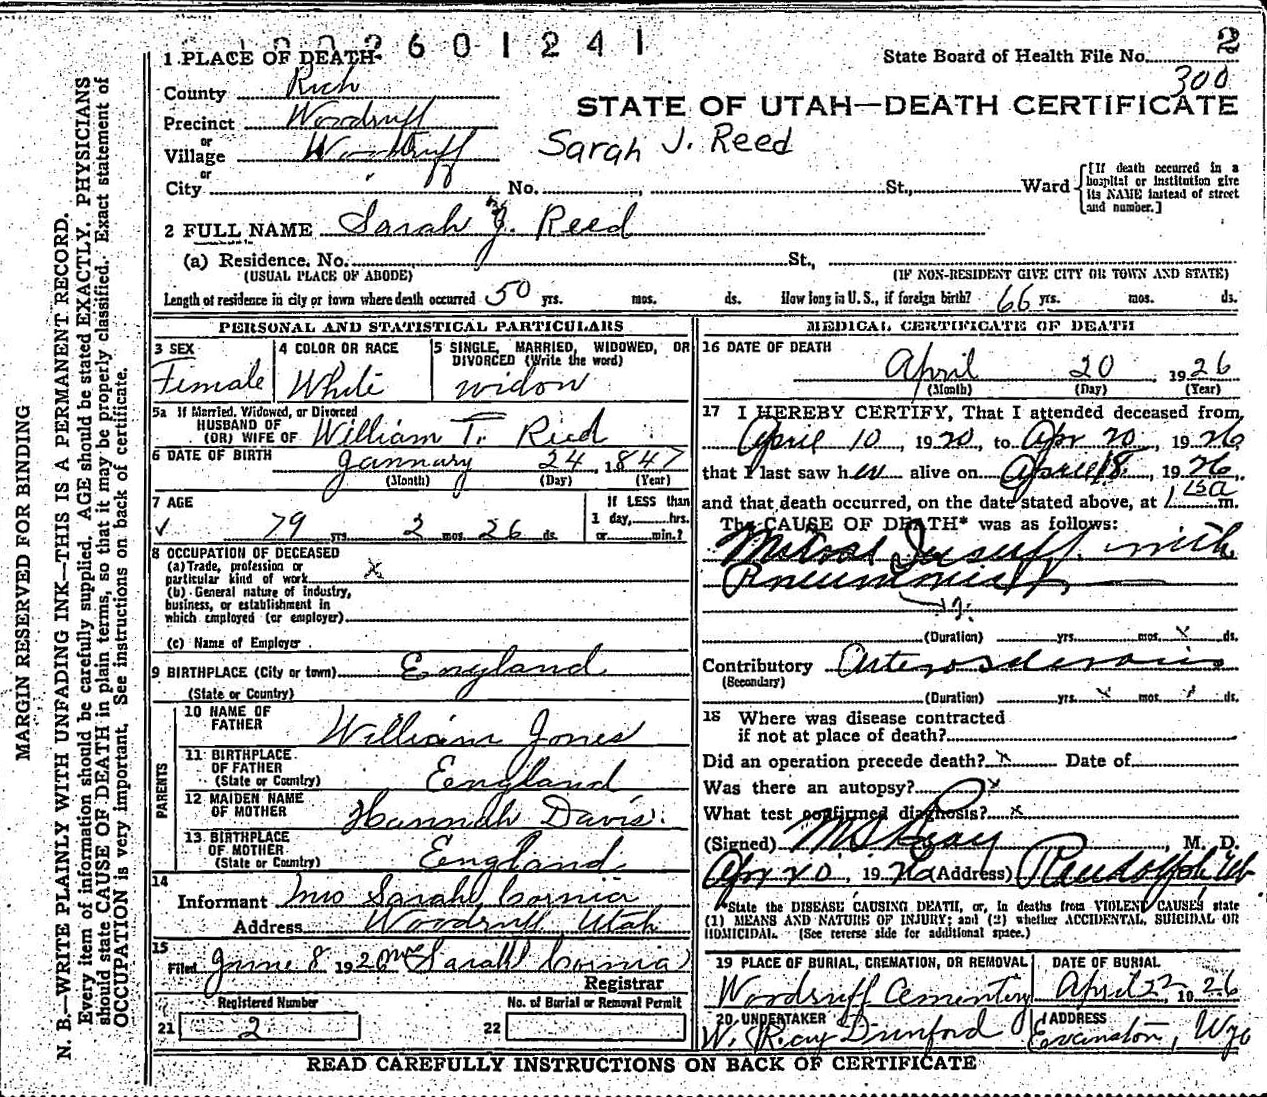 2601241
1 PLACE OF DEATH
State Board of Health File No. 2
300
County Rich
STATE OF UTAH—DEATH CERTIFICATE
Precinct Woodruff
or
Village Woodruff
Sarah J. Reed
or
City No. St., Ward
[If death occurred in a
hospital or institution give
its NAME instead of street
and number.]
2 FULL NAME Sarah J. Reed
(a) Residence. No. St.,
(USUAL PLACE OF ABODE) (IF NON-RESIDENT GIVE CITY OR TOWN AND STATE)
Length of residence in city or town where death occurred 50 yrs. mos. ds. How long in U. S., if foreign birth? 66 yrs. mos. ds.
PERSONAL AND STATISTICAL PARTICULARS
3 SEX
Female
4 COLOR OR RACE
White
5 SINGLE, MARRIED, WIDOWED, OR
DIVORCED (Write the word)
widow
5a If Married, Widowed, or Divorced
HUSBAND OF
(OR) WIFE OF William T. Reed
6 DATE OF BIRTH January 24 1847
(Month) (Day) (Year)
7 AGE
79 yrs. 2 mos. 26 ds.
If LESS than
1 day, hrs.
or min.?
8 OCCUPATION OF DECEASED
(a) Trade, profession or
particular kind of work x
(b) General nature of industry,
business, or establishment in
which employed (or employer)
(c) Name of Employer
9 BIRTHPLACE (City or town) England
(State or Country)
PARENTS
10 NAME OF
FATHER William Jones
11 BIRTHPLACE
OF FATHER
(State or Country) England
12 MAIDEN NAME
OF MOTHER Hannah Davis
13 BIRTHPLACE
OF MOTHER
(State or Country) England
14
Informant Mrs Sarah Cornia
Address Woodruff, Utah
15
Filed June 8, 192 Mrs Sarah Cornia
Registrar
Registered Number
21 2
No. of Burial or Removal Permit
22
MEDICAL CERTIFICATE OF DEATH
16 DATE OF DEATH
April 20 1926
(Month) (Day) (Year)
17 I HEREBY CERTIFY, That I attended deceased from
April 10, 1920, to Apr 20, 1926
that I last saw her alive on April 18, 1926,
and that death occurred, on the date stated above, at m.
The CAUSE OF DEATH* was as follows:
Mitral Insuff. with
Pneumonia
(Duration) yrs. mos. x ds.
Contributory Arterosclerosis
(Secondary)
(Duration) yrs. mos. ds.
18 Where was disease contracted
if not at place of death?
Did an operation precede death? x Date of
Was there an autopsy? x
What test confirmed diagnosis? x
(Signed) M. D.
Apr 20, 1926 (Address) Randolph Ut
*State the DISEASE CAUSING DEATH, or, in deaths from VIOLENT CAUSES state
(1) MEANS AND NATURE OF INJURY; and (2) whether ACCIDENTAL, SUICIDAL OR
HOMICIDAL. (See reverse side for additional space.)
19 PLACE OF BURIAL, CREMATION, OR REMOVAL
Woodruff Cementery
DATE OF BURIAL
April 22, 1926
20 UNDERTAKER
W. Ray Dunford
ADDRESS
Evanston, Wyo
READ CAREFULLY INSTRUCTIONS ON BACK OF CERTIFICATE
MARGIN RESERVED FOR BINDING
N. B.—WRITE PLAINLY WITH UNFADING INK—THIS IS A PERMANENT RECORD.
Every item of information should be carefully supplied. AGE should be stated EXACTLY. PHYSICIANS
should state CAUSE OF DEATH in plain terms, so that it may be properly classified. Exact statement of
OCCUPATION is very important. See instructions on back of certificate.